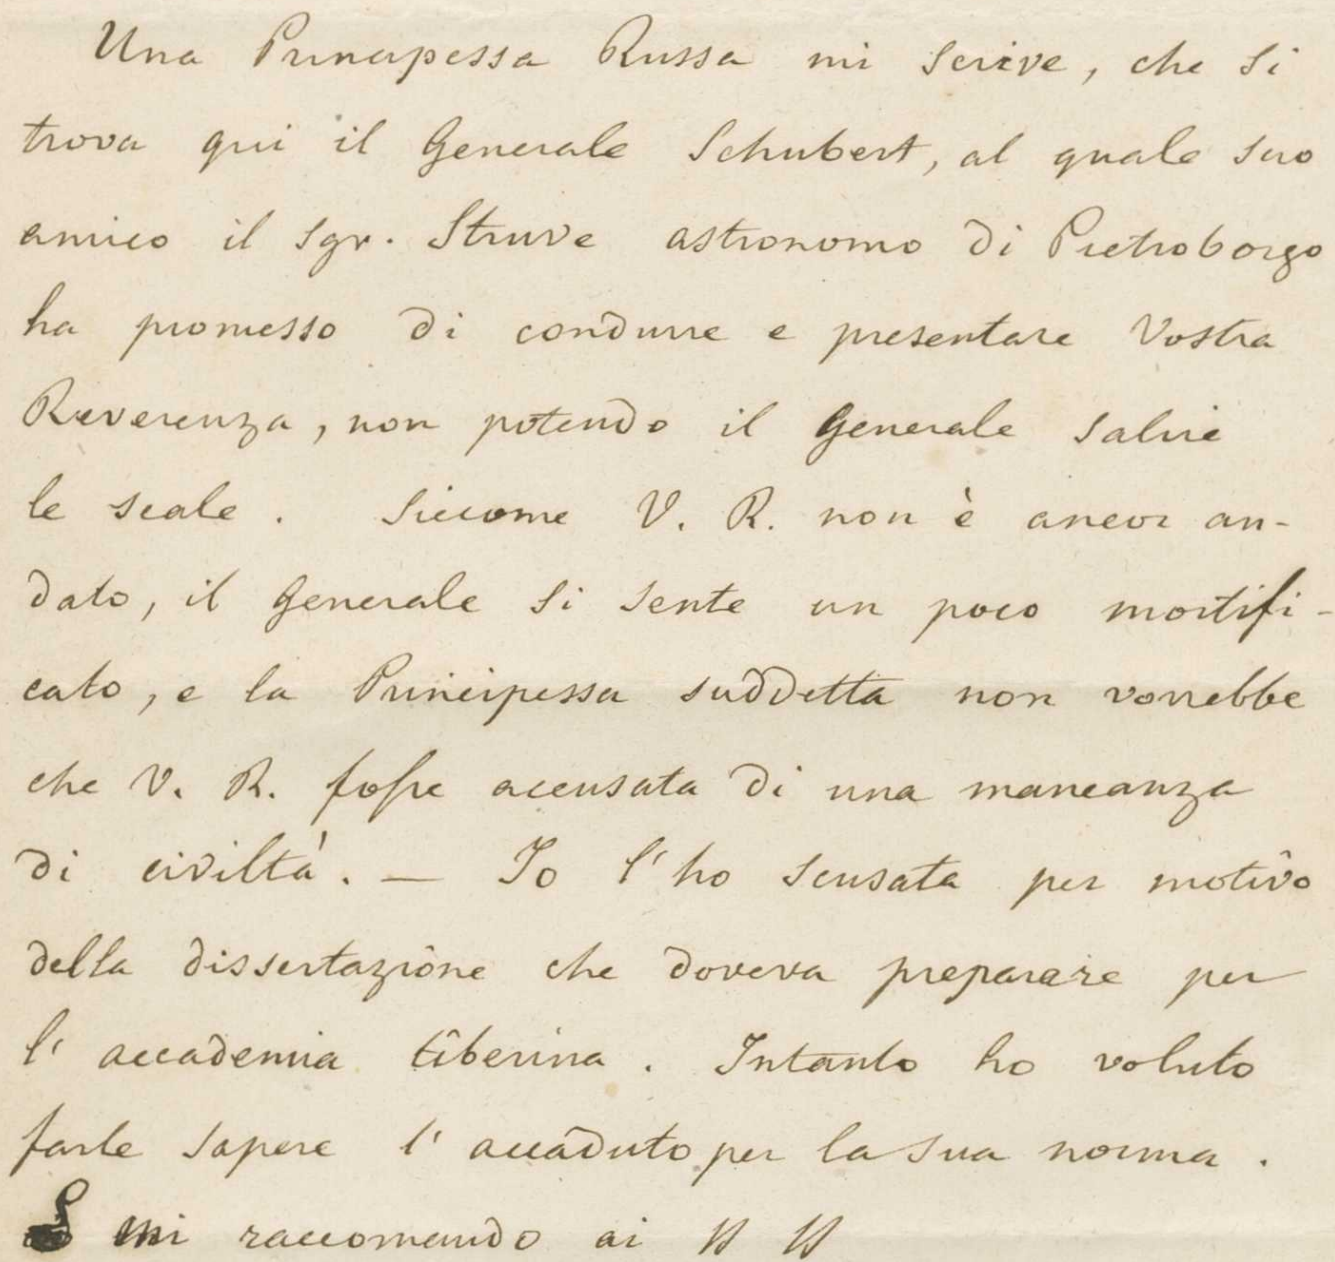 Una Principessa Russa mi scrive, che si
trova qui il Generale Schubert, al quale suo
amico il Sgr. Struve astronomo di Pietroborgo
ha promesso di condurre e presentare Vostra
Reverenza, non potendo il Generale salire
le scale. Siccome V. R. non è ancor an-
dato, il Generale si sente un poco mortifi-
cato, e la Principessa suddetta non vorrebbe
che V. R. fosse accusata di una mancanza
di civiltà. — Io l'ho scusata per motivo
della dissertazione che doveva preparare per
l'accademia tiberina. Intanto ho voluto
farle sapere l'accaduto per la sua norma.
mi raccomando ai SS SS